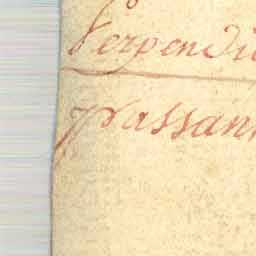 Perpendic
passan